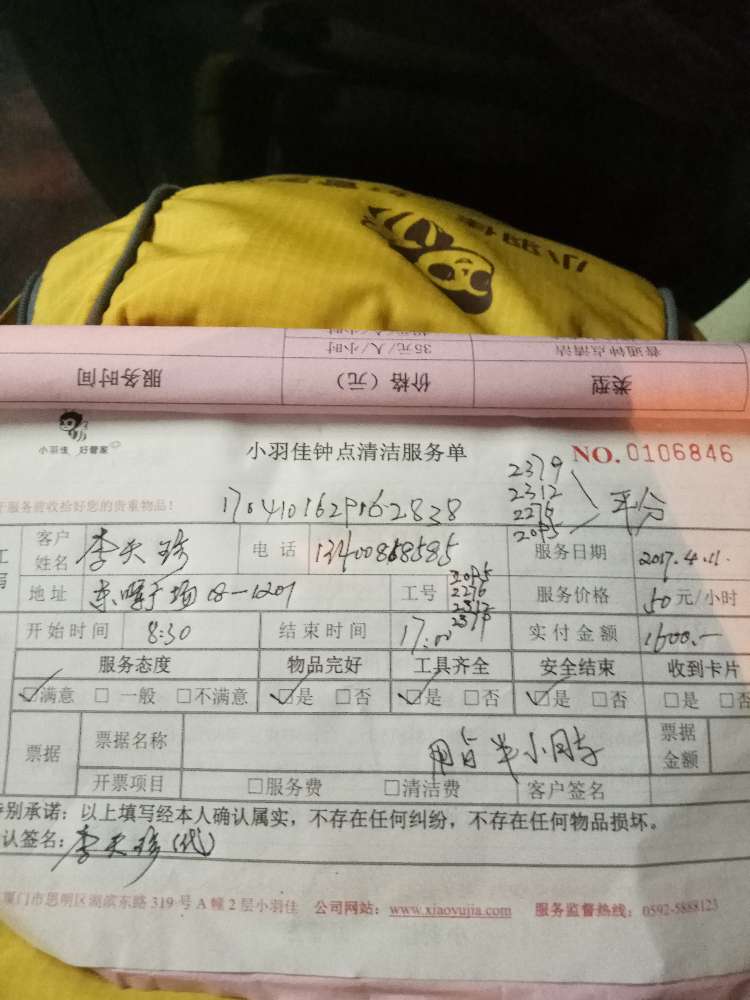 小羽佳
普通钟点清洁 35元/人/小时
类型 价格（元） 服务时间
小羽佳 好管家
小羽佳钟点清洁服务单 NO.0106846
服务前收拾好您的贵重物品！
2379
2312
2276
2095
平分
客户姓名 李天珍 电话 13400858585 服务日期 2017.4.11.
地址 18-1201 工号 2095 2276 2312 2379 服务价格 50元/小时
开始时间 8:30 结束时间 17:00 实付金额 1600.-
服务态度 物品完好 工具齐全 安全结束 收到卡片
☑满意 □一般 □不满意 ☑是 □否 ☑是 □否 ☑是 □否 □是 □否
票据 票据名称 票据金额
开票项目 □服务费 □清洁费 客户签名
特别承诺：以上填写经本人确认属实，不存在任何纠纷，不存在任何物品损坏。
认签名：李天珍(代)
厦门市思明区湖滨东路319号A幢2层小羽佳 公司网站：www.xiaoyujia.com 服务监督热线：0592-5888123